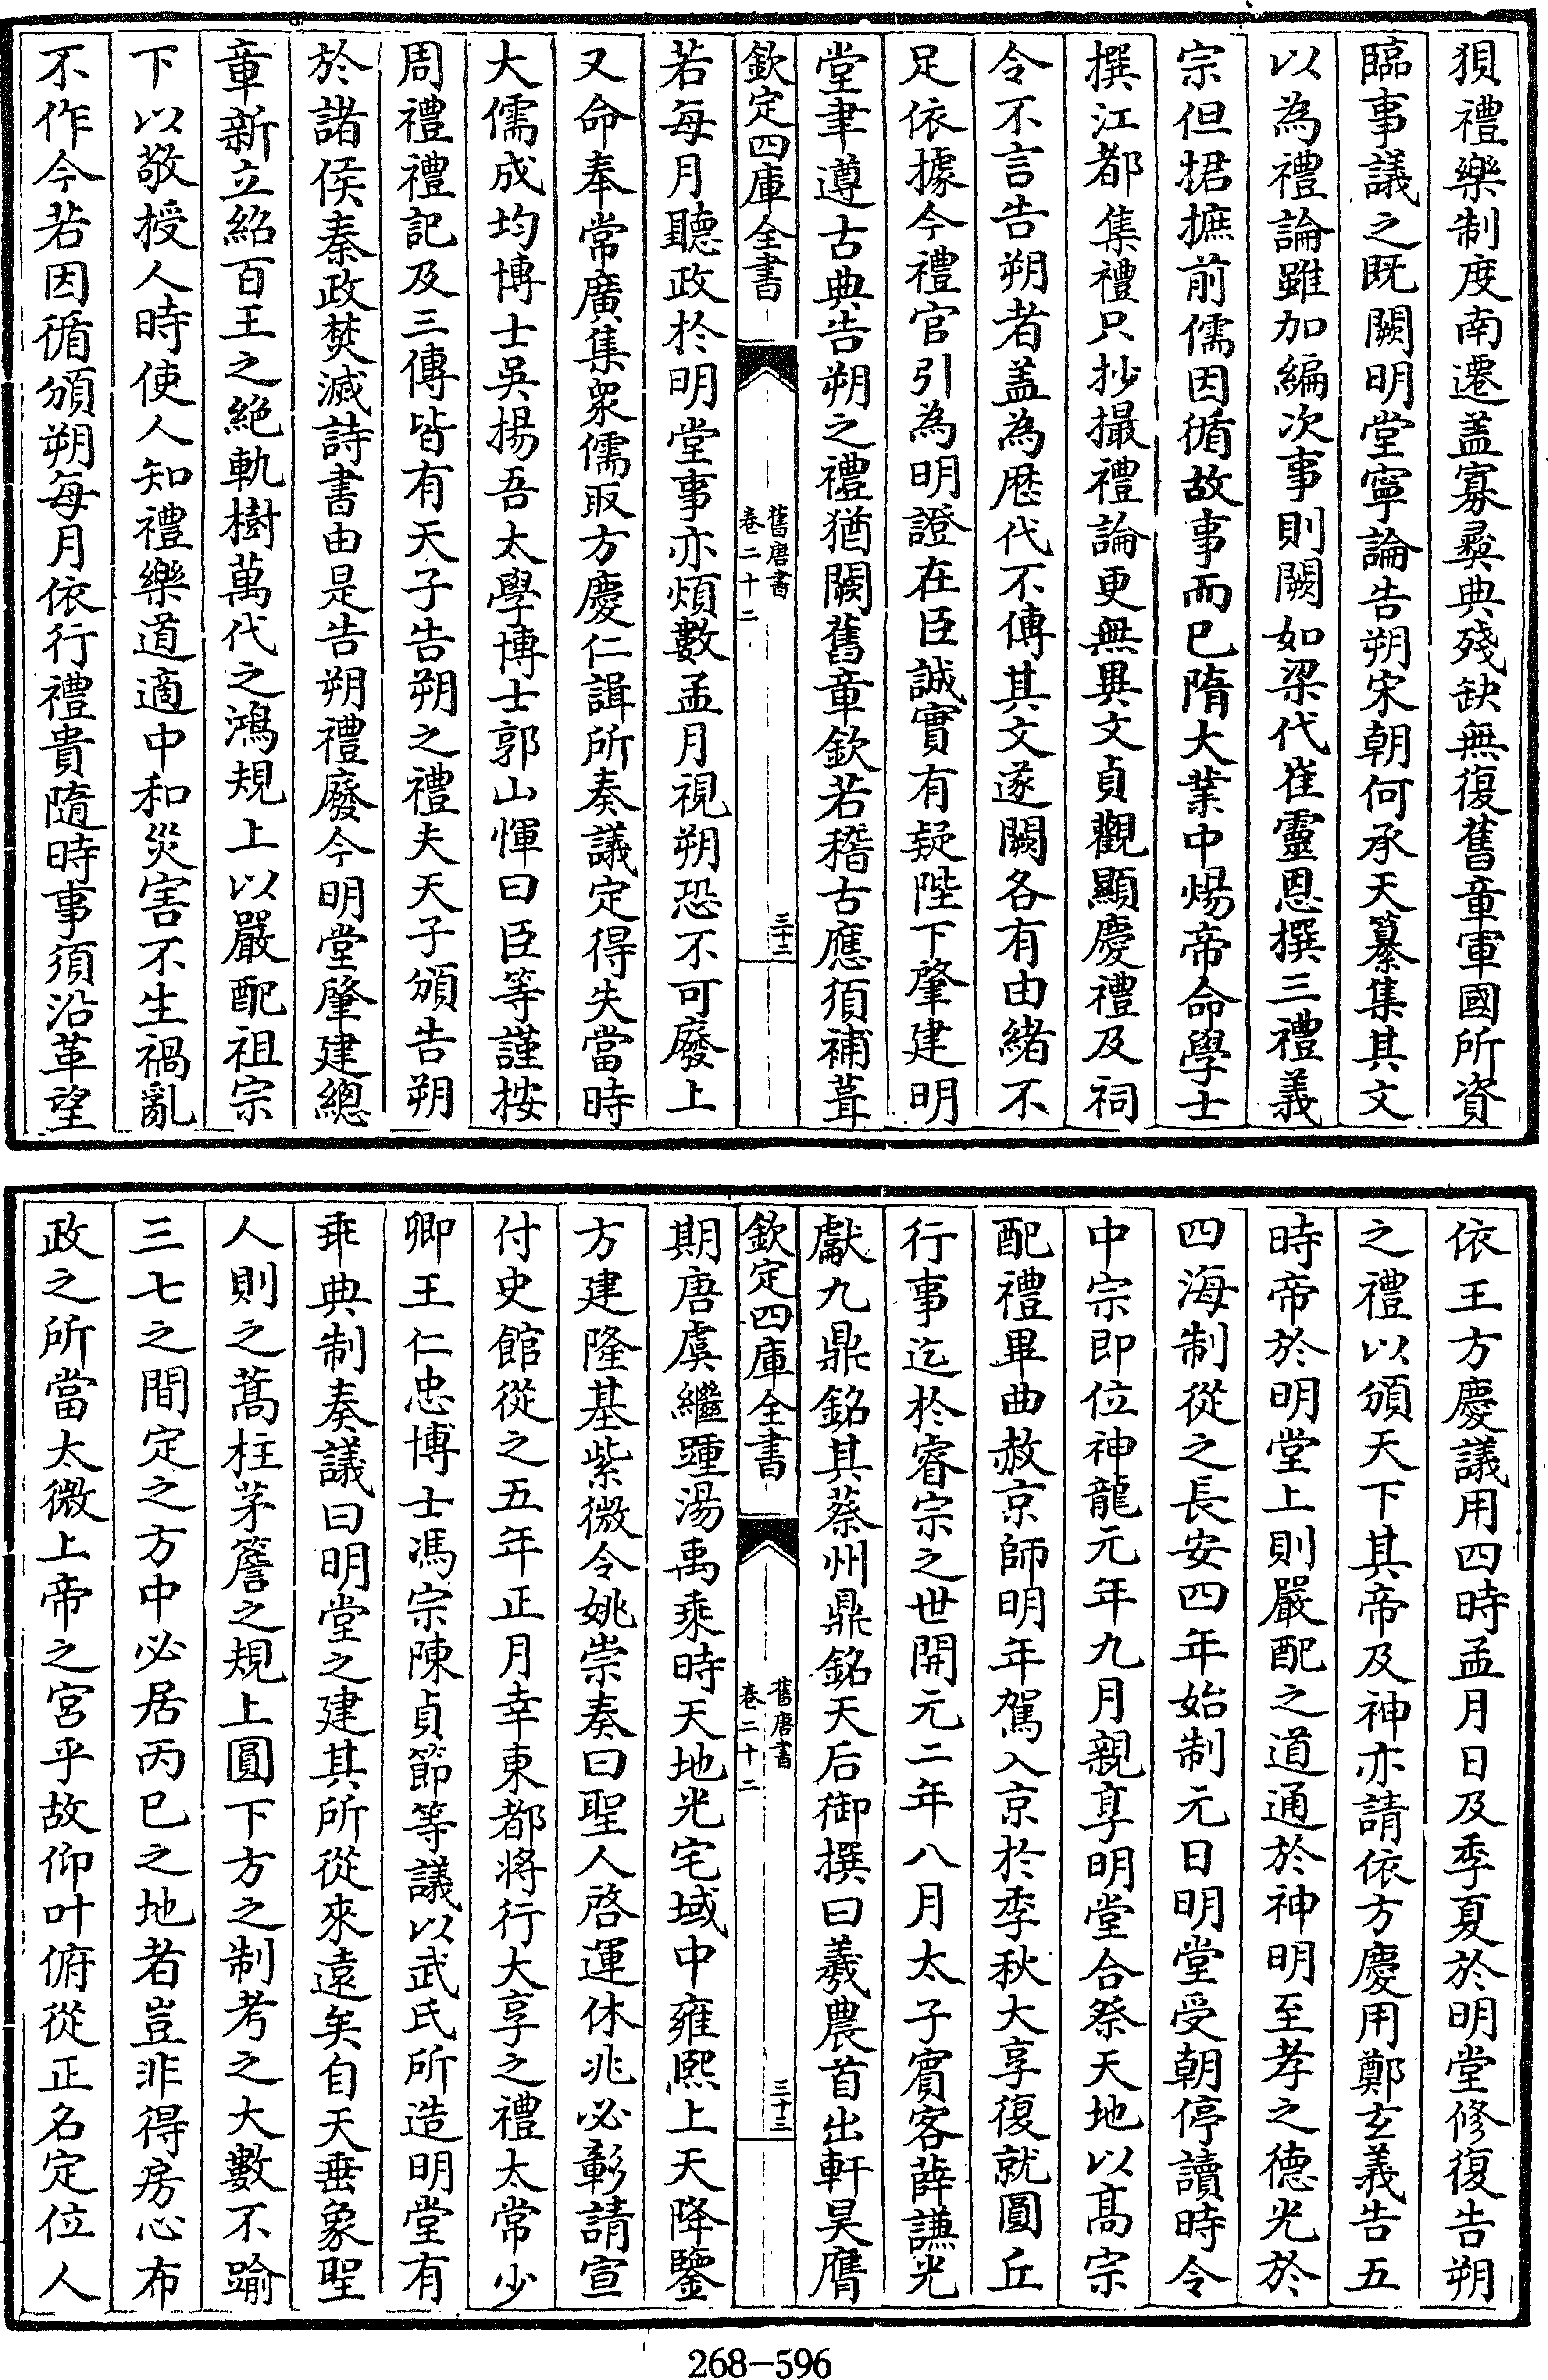 狽禮樂制度南遷盖寡彛典殘缺無復舊章軍國所資
臨事議之既闕明堂寧論告朔宋朝何承天纂集其文
以為禮論雖加編次事則闕如梁代崔靈恩撰三禮義
宗但捃摭前儒因循故事而已隋大業中煬帝命學士
撰江都集禮只抄撮禮論更無異文貞觀顯慶禮及祠
令不言告朔者盖為歴代不傳其文遂闕各有由緒不
足依據今禮官引為明證在臣誠實有疑陛下肇建明
堂聿遵古典告朔之禮猶闕舊章欽若稽古應須補葺
欽定四庫全書
舊唐書
卷二十二
三十二
若每月聽政於明堂事亦煩數孟月視朔恐不可廢上
又命奉常廣集衆儒取方慶仁諝所奏議定得失當時
大儒成均博士吳揚吾太學博士郭山惲曰臣等謹按
周禮禮記及三傳皆有天子告朔之禮夫天子頒告朔
於諸侯秦政焚滅詩書由是告朔禮廢今明堂肇建總
章新立紹百王之絶軌樹萬代之鴻規上以嚴配祖宗
下以敬授人時使人知禮樂道適中和災害不生禍亂
不作今若因循頒朔每月依行禮貴隨時事須沿革望
依王方慶議用四時孟月日及季夏於明堂修復告朔
之禮以頒天下其帝及神亦請依方慶用鄭玄義告五
時帝於明堂上則嚴配之道通於神明至孝之德光於
四海制從之長安四年始制元日明堂受朝停讀時令
中宗即位神龍元年九月親享明堂合祭天地以髙宗
配禮畢曲赦京師明年駕入京於季秋大享復就圓丘
行事迄於睿宗之世開元二年八月太子賓客薛謙光
獻九鼎銘其蔡州鼎銘天后御撰曰羲農首出軒昊膺
欽定四庫全書
舊唐書
卷二十二
三十三
期唐虞繼踵湯禹乘時天地光宅域中雍熙上天降鑒
方建隆基紫微令姚崇奏曰聖人啓運休兆必彰請宣
付史館從之五年正月幸東都将行大享之禮太常少
卿王仁忠博士馮宗陳貞節等議以武氏所造明堂有
乖典制奏議曰明堂之建其所從來遠矣自天垂象聖
人則之蒿柱茅簷之規上圓下方之制考之大數不踰
三七之間定之方中必居丙巳之地者豈非得房心布
政之所當太微上帝之宮乎故仰叶俯從正名定位人
268-596